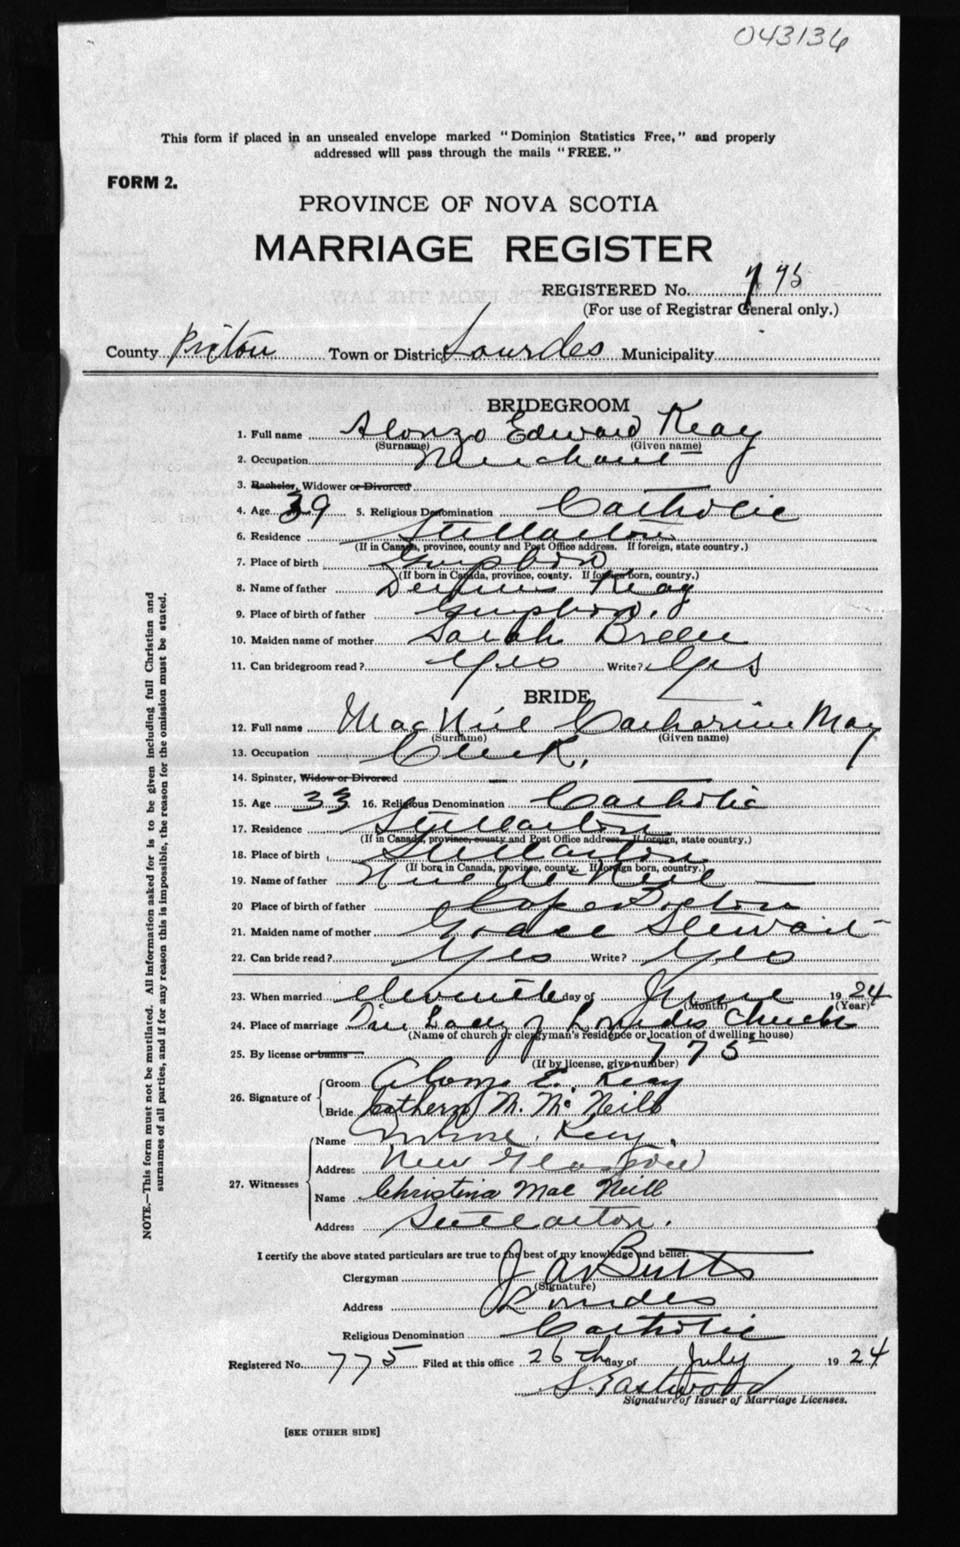 043136
This form if placed in an unsealed envelope marked "Dominion Statistics Free," and properly
addressed will pass through the mails "FREE."
FORM 2.
PROVINCE OF NOVA SCOTIA
MARRIAGE REGISTER
REGISTERED No.
(For use of Registrar General only.)
County Pictou Town or District Lourdes Municipality
BRIDEGROOM
1. Full name Alonzo Edward Keay
(Surname) (Given name)
2. Occupation Merchant
3. Bachelor, Widower or Divorced
4. Age 39 5. Religious Denomination Catholic
6. Residence Stellarton
(If in Canada, province, county and Post Office address. If foreign, state country.)
7. Place of birth
(If born in Canada, province, county. If foreign born, country.)
8. Name of father Keay
9. Place of birth of father
10. Maiden name of mother Sarah Breen
11. Can bridegroom read? Yes Write? Yes
BRIDE
12. Full name MacNeil Catharine May
(Surname) (Given name)
13. Occupation Clerk.
14. Spinster, Widow or Divorced
15. Age 33 16. Religious Denomination Catholic
17. Residence Stellarton
(If in Canada, province, county and Post Office address. If foreign, state country.)
18. Place of birth Stellarton
(If born in Canada, province, county. If foreign born, country.)
19. Name of father Neil
20 Place of birth of father Cape Breton
21. Maiden name of mother Grace Stewart
22. Can bride read? Yes Write? Yes
23. When married eleventh day of June 1924
(Month) (Year)
24. Place of marriage Our Lady of Lourdes Church
(Name of church or clergyman's residence or location of dwelling house)
25. By license or banns 775
(If by license, give number)
26. Signature of Groom Alonzo E. Keay
Bride Catherine M. McNeill
27. Witnesses Name Keay.
Address New Glasgow
Name Christina Mac Neill
Address Stellarton.
I certify the above stated particulars are true to the best of my knowledge and belief.
Clergyman J A Butts
(Signature)
Address Lourdes
Religious Denomination Catholic
Registered No. 775 Filed at this office 26th day of July 1924
S. Eastwood
Signature of Issuer of Marriage Licenses.
[SEE OTHER SIDE]
NOTE.—This form must not be mutilated. All information asked for is to be given including full Christian and
surnames of all parties, and if for any reason this is impossible, the reason for the omission must be stated.